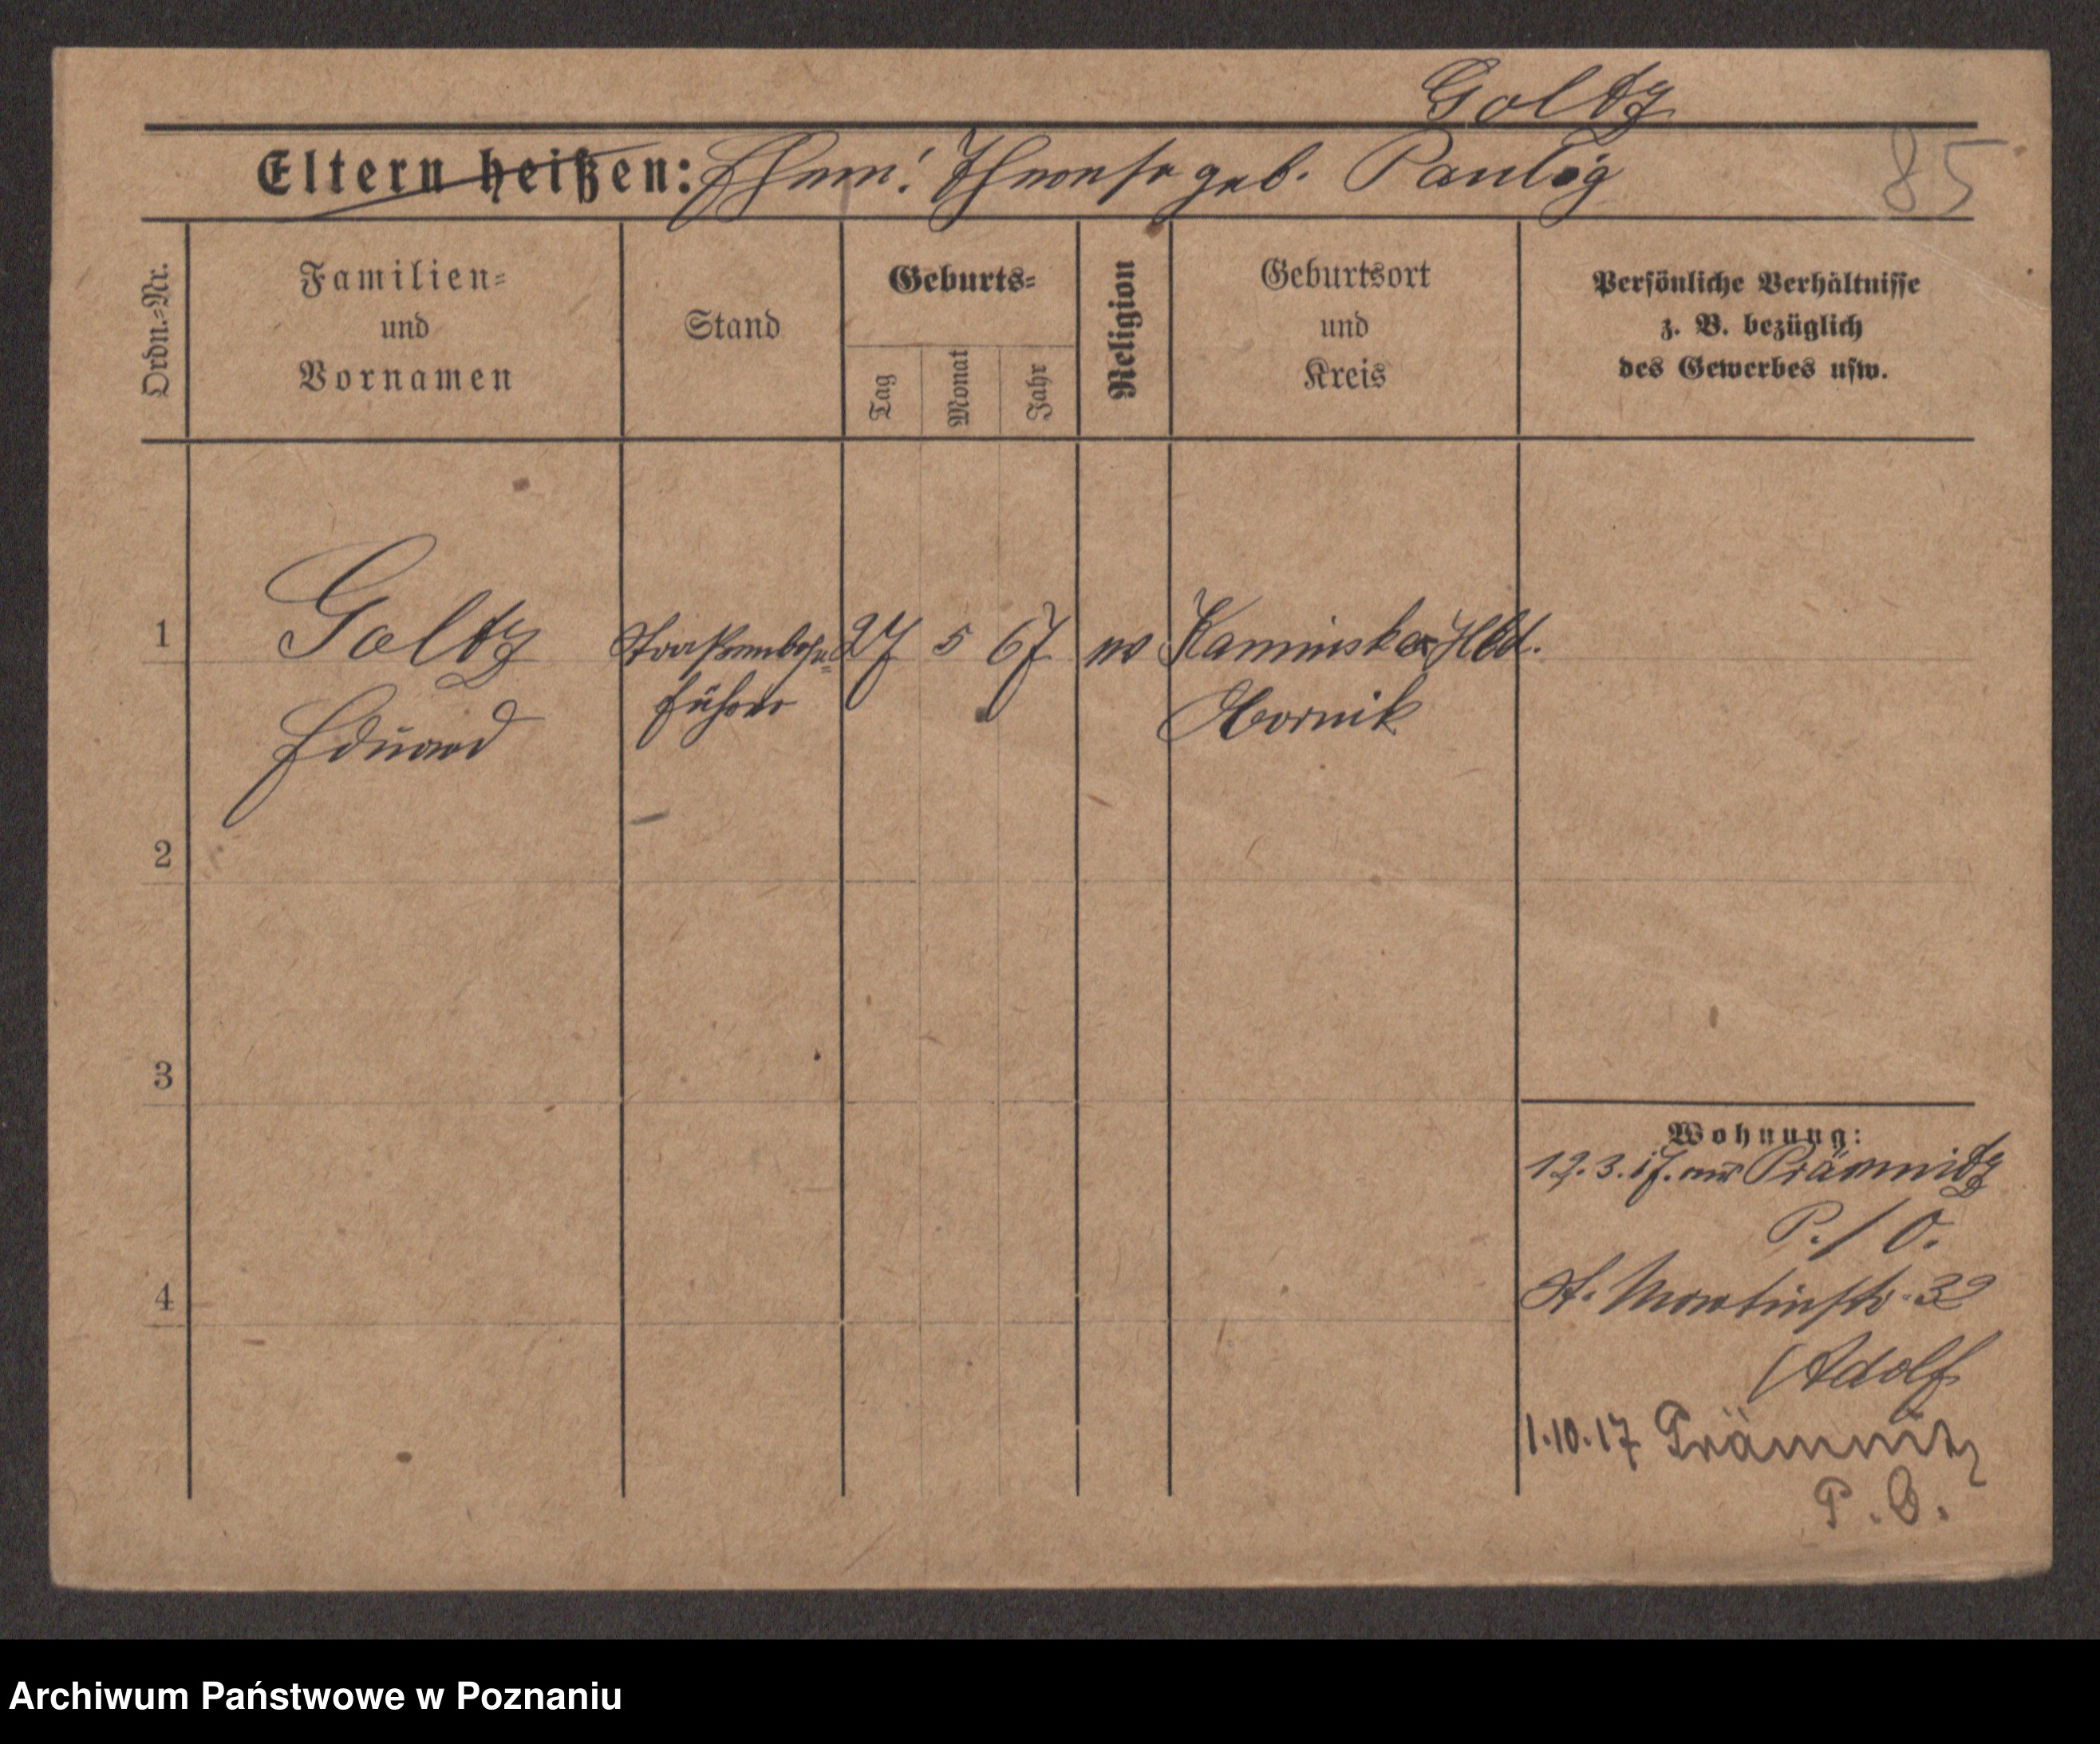 Goltz
Eltern heißen: Ehem. Therese geb. Paulig
85
Ordn.-Nr.
Familien-
und
Vornamen
Stand
Geburts-
Tag
Monat
Jahr
Religion
Geburtsort
und
Kreis
Persönliche Verhältnisse
z. B. bezüglich
des Gewerbes usw.
1
Goltz
Eduard
Straßenbahn-
führer
27 5 67
ev
Kaminska Hld.
Obornik
2
3
4
Wohnung:
12.3.17. aus Prämnitz
P./O.
St. Martinstr. 32
Adolf
1.10.17 Prämnitz
P.O.
Archiwum Państwowe w Poznaniu